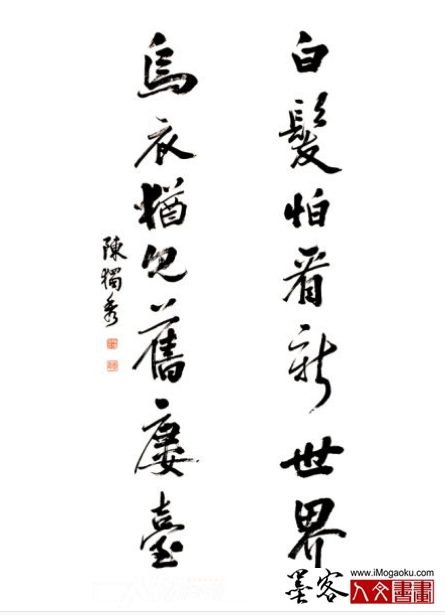 白髮怕看新世界
烏衣猶見舊廔臺
陳獨秀
墨客
www.iMogaoku.com
人文書畫